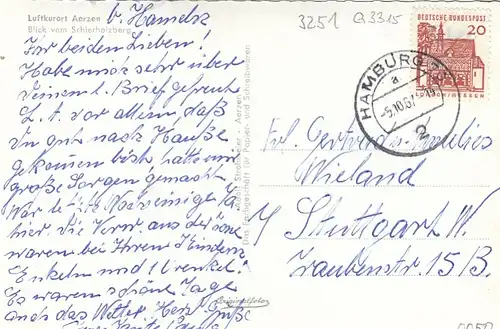 Luftkurort Aerzen b. Hameln
Blick vom Schierholzberg
3251 Q3315
Ihr beiden Lieben!
Habe mich sehr über
Deinen l. Brief gefreut
L. T. vor allem, daß
Du gut nach Hause
gekommen bist, hatte mir
große Sorgen gemacht
War l. die
hier, die Verw. aus der
waren bei Ihren Kindern
Enkeln und 1 Urenkel.
Es waren schöne Tage
auch das Wetter. Herzl. Grüße
Das Fachgeschäft für Papier- und Schreibwaren
Originalfoto
DEUTSCHE BUNDESPOST
20
LORSCH/HESSEN
HAMBURG
a
-5.10.67-19
2
Frl. Gertrud u. Annelies
Wieland
7 Stuttgart W.
Traubenstr. 15/B.